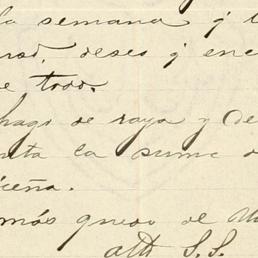 la semana q
deseo q en
e todo.
hago de raya y de
nta la suma d
cena.
más quedo de
atto S. S.